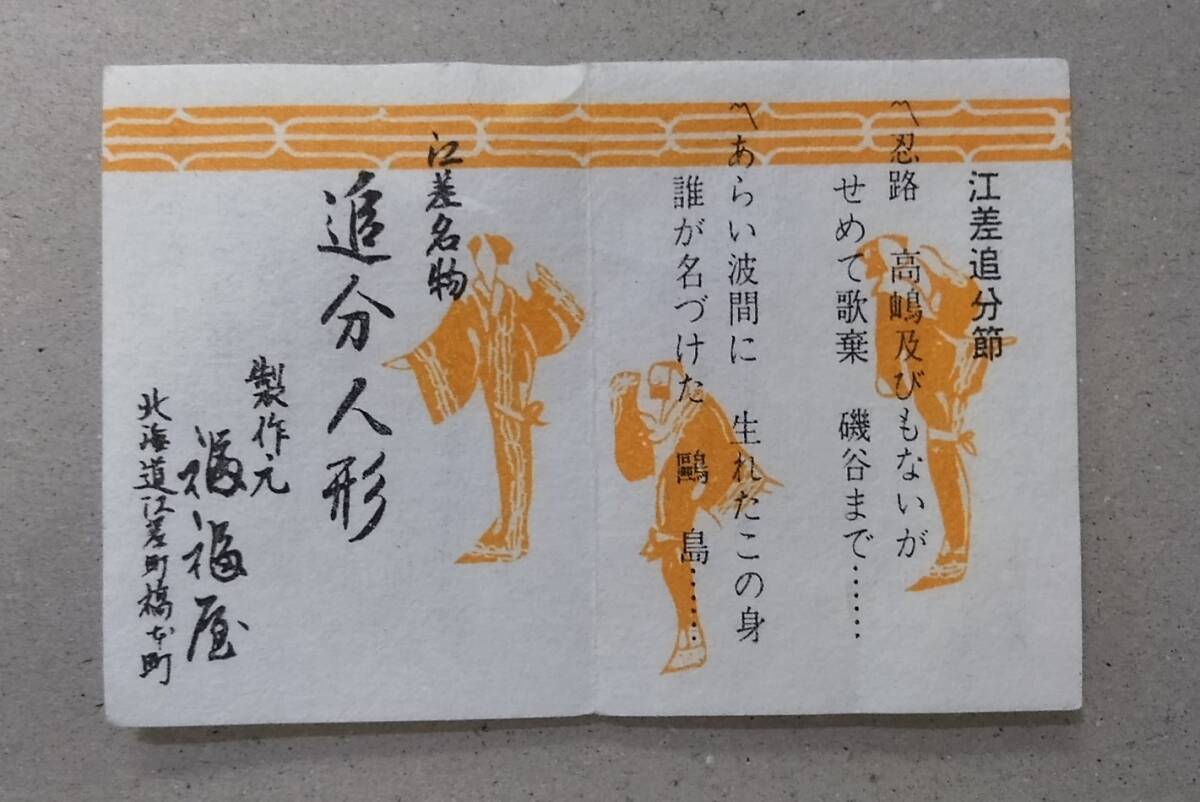 江差追分節
〽忍路　高嶋及びもないが
せめて歌棄　磯谷まで……
〽あらい波間に　生れたこの身
誰が名づけた　鷗　島……
江差名物
追分人形
製作元
福福屋
北海道江差町橋本町